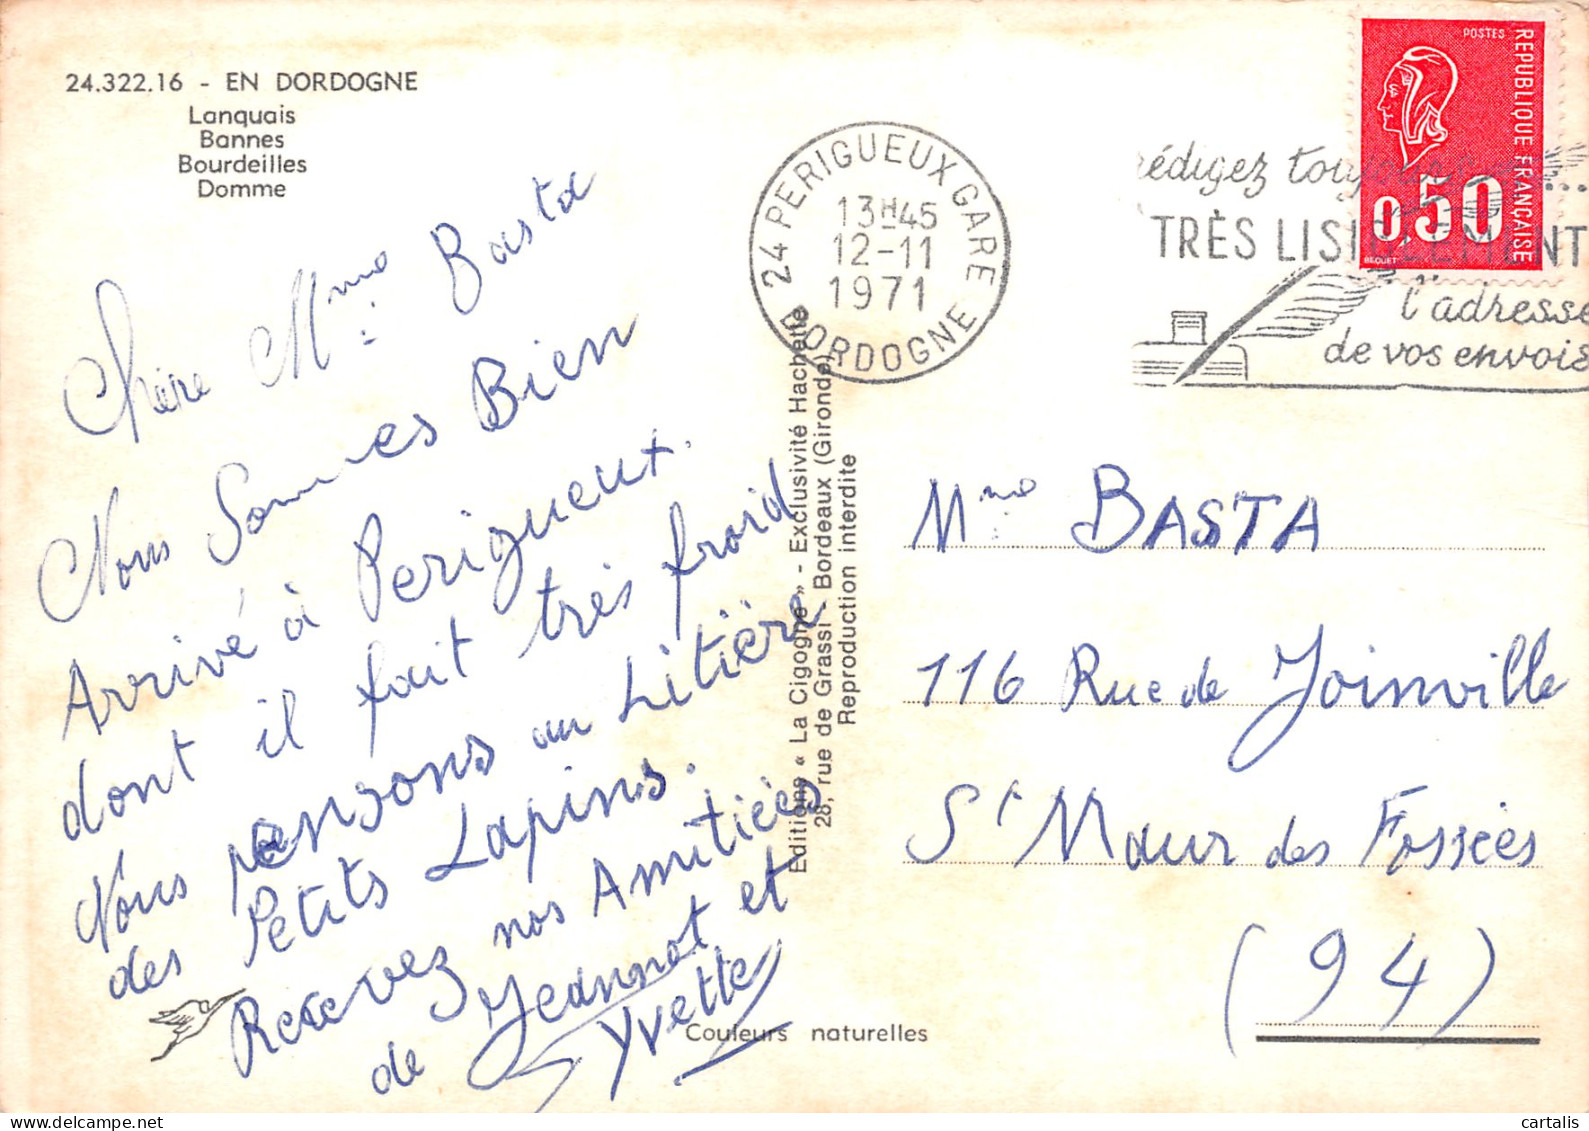 24.322.16 - EN DORDOGNE
Lanquais
Bannes
Bourdeilles
Domme
Chère Mme Basta
Nous Sommes Bien
Arrivé à Perigueux.
dont il fait très froid
Nous pensons au Litière
des Petits Lapins.
Recevez nos Amitiées
de Jeannot et
Yvette
Editions « La Cigogne » - Exclusivité Hachette
28, rue de Grassi - Bordeaux (Gironde)
Reproduction interdite
Couleurs naturelles
24 PERIGUEUX GARE
13H45
12-11
1971
DORDOGNE
rédigez toujours
TRÈS LISIBLEMENT
l'adresse
de vos envois
POSTES
REPUBLIQUE FRANÇAISE
0,50
BEQUET
Mme BASTA
116 Rue de Joinville
St Maur des Fossées
(94)
www.delcampe.net
cartalis